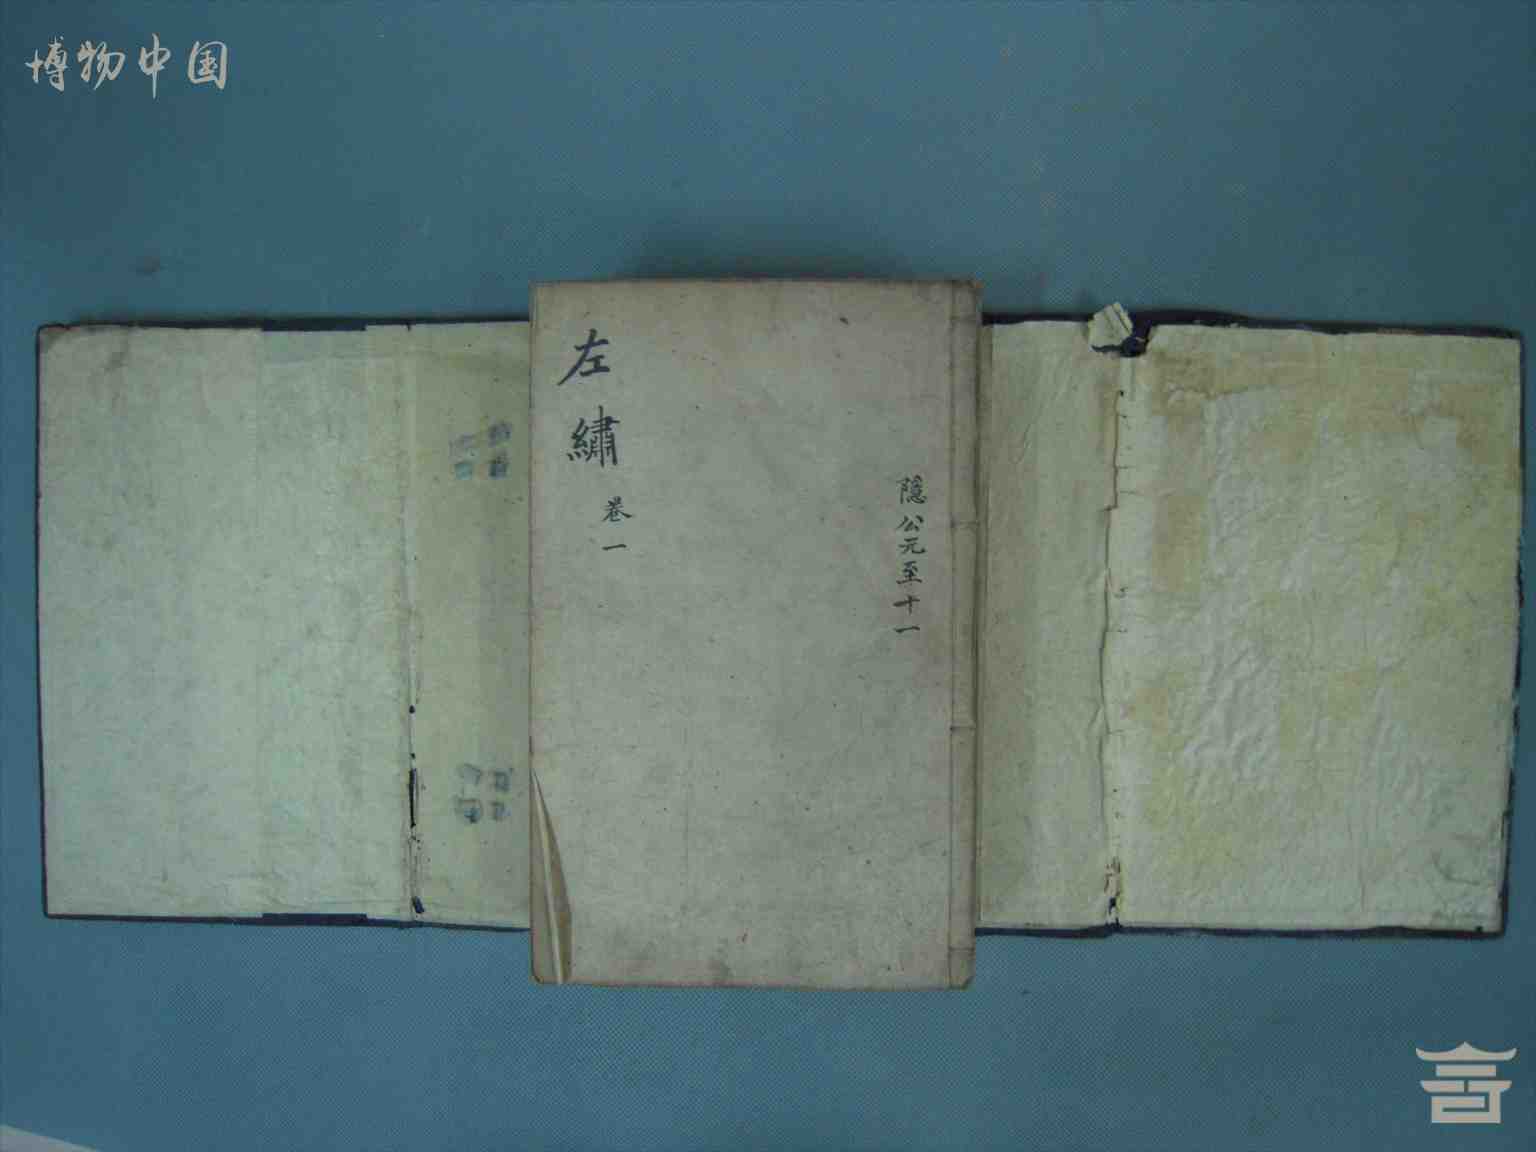 博物中国
隱公元至十一
左繡
卷一